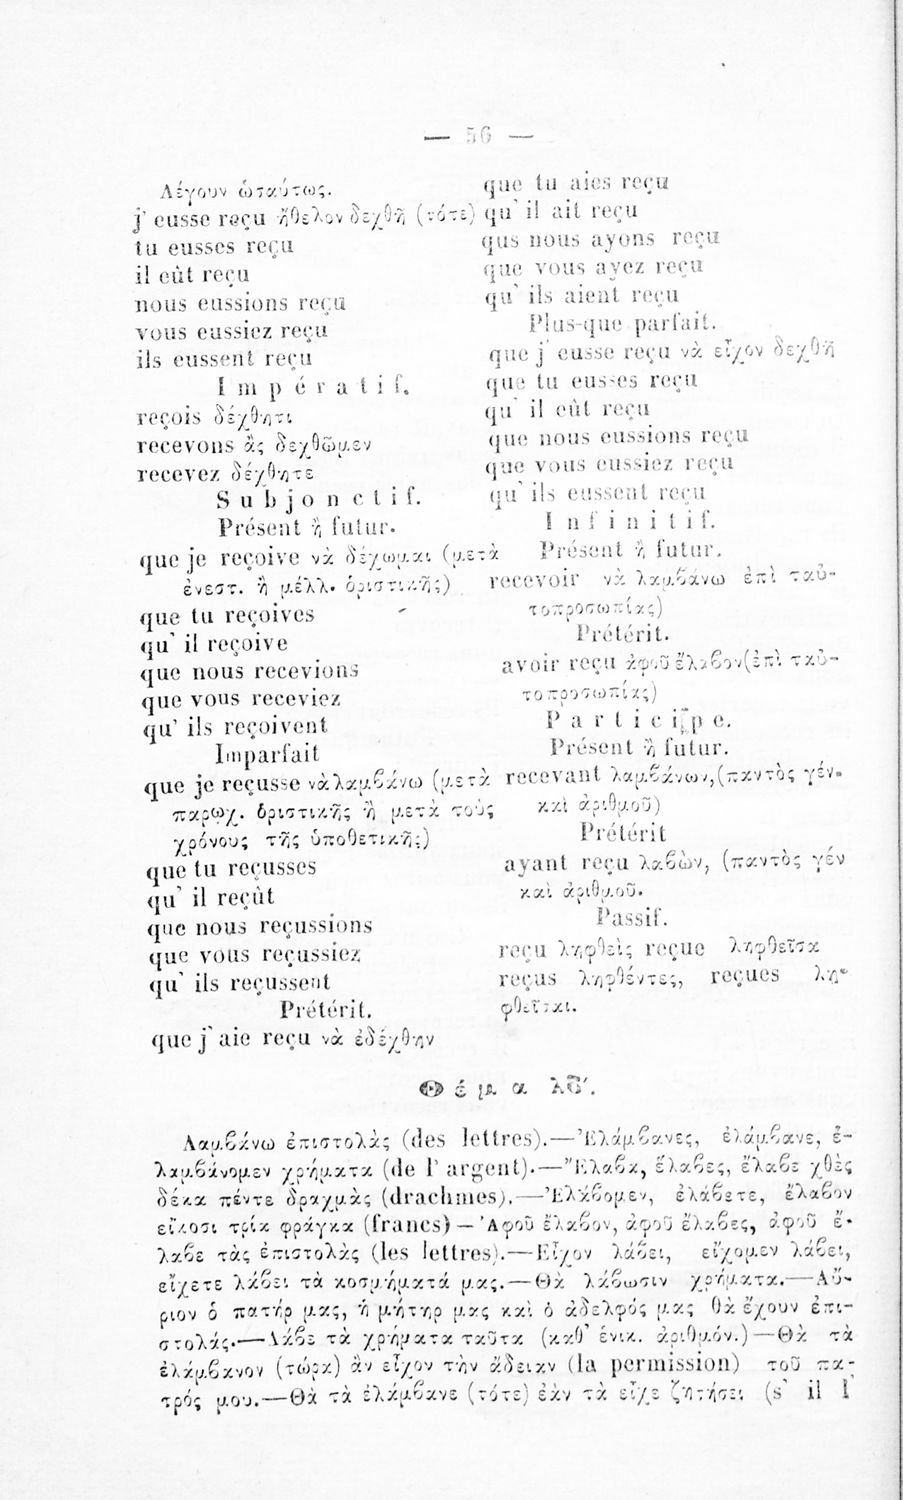 — 56 —
Λέγουν ὡσαύτως.
j' eusse reçu ἤθελον δεχθῆ (τότε)
tu eusses reçu
il eût reçu
nous eussions reçu
vous eussiez reçu
ils eussent reçu
Impératif.
reçois δέχθητι
recevons ἂς δεχθῶμεν
recevez δέχθητε
Subjonctif.
Présent ἢ futur.
que je reçoive νὰ δέχωμαι (μετὰ
ἐνεστ. ἢ μέλλ. ὁριστικῆς)
que tu reçoives
qu' il reçoive
que nous recevions
que vous receviez
qu' ils reçoivent
Imparfait
que je reçusse νὰ λαμβάνω (μετὰ
παρῳχ. ὁριστικῆς ἢ μετὰ τοὺς
χρόνους τῆς ὑποθετικῆς)
que tu reçusses
qu' il reçût
que nous reçussions
que vous reçussiez
qu' ils reçussent
Prétérit.
que j' aie reçu νὰ ἐδέχθην
que tu aies reçu
qu' il ait reçu
qus nous ayons reçu
que vous ayez reçu
qu' ils aient reçu
Plus-que parfait.
que j' eusse reçu νὰ εἶχον δεχθῆ
que tu eusses reçu
qu' il eût reçu
que nous eussions reçu
que vous eussiez reçu
qu' ils eussent reçu
Infinitif.
Présent ἢ futur.
recevoir νὰ λαμβάνω ἐπὶ ταὐ-
τοπροσωπίας)
Prétérit.
avoir reçu ἀφοῦ ἔλαβον (ἐπὶ ταὐ-
τοπροσωπίας)
Participe.
Présent ἢ futur.
recevant λαμβάνων, (παντὸς γέν.
καὶ ἀριθμοῦ)
Prétérit
ayant reçu λαβὼν, (παντὸς γέν
καὶ ἀριθμοῦ.
Passif.
reçu ληφθεὶς reçue ληφθεῖσα
reçus ληφθέντες, reçues λη-
φθεῖσαι.
Θέμα λθ'.
Λαμβάνω ἐπιστολὰς (des lettres).—Ἐλάμβανες, ἐλάμβανε, ἐ-
λαμβάνομεν χρήματα (de l' argent).—Ἔλαβα, ἔλαβες, ἔλαβε χθὲς
δέκα πέντε δραχμὰς (drachmes).—Ἐλάβομεν, ἐλάβετε, ἔλαβον
εἴκοσι τρία φράγκα (francs) — Ἀφοῦ ἔλαβον, ἀφοῦ ἔλαβες, ἀφοῦ ἔ-
λαβε τὰς ἐπιστολὰς (les lettres).—Εἶχον λάβει, εἴχομεν λάβει,
εἴχετε λάβει τὰ κοσμήματά μας.—Θὰ λάβωσιν χρήματα.—Αὔ-
ριον ὁ πατήρ μας, ἡ μήτηρ μας καὶ ὁ ἀδελφός μας θὰ ἔχουν ἐπι-
στολάς.—Λάβε τὰ χρήματα ταῦτα (καθ' ἑνικ. ἀριθμόν.)—Θὰ τὰ
ἐλάμβανον (τώρα) ἂν εἶχον τὴν ἄδειαν (la permission) τοῦ πα-
τρός μου.—Θὰ τὰ ἐλάμβανε (τότε) ἐὰν τὰ εἶχε ζητήσει (s' il l'